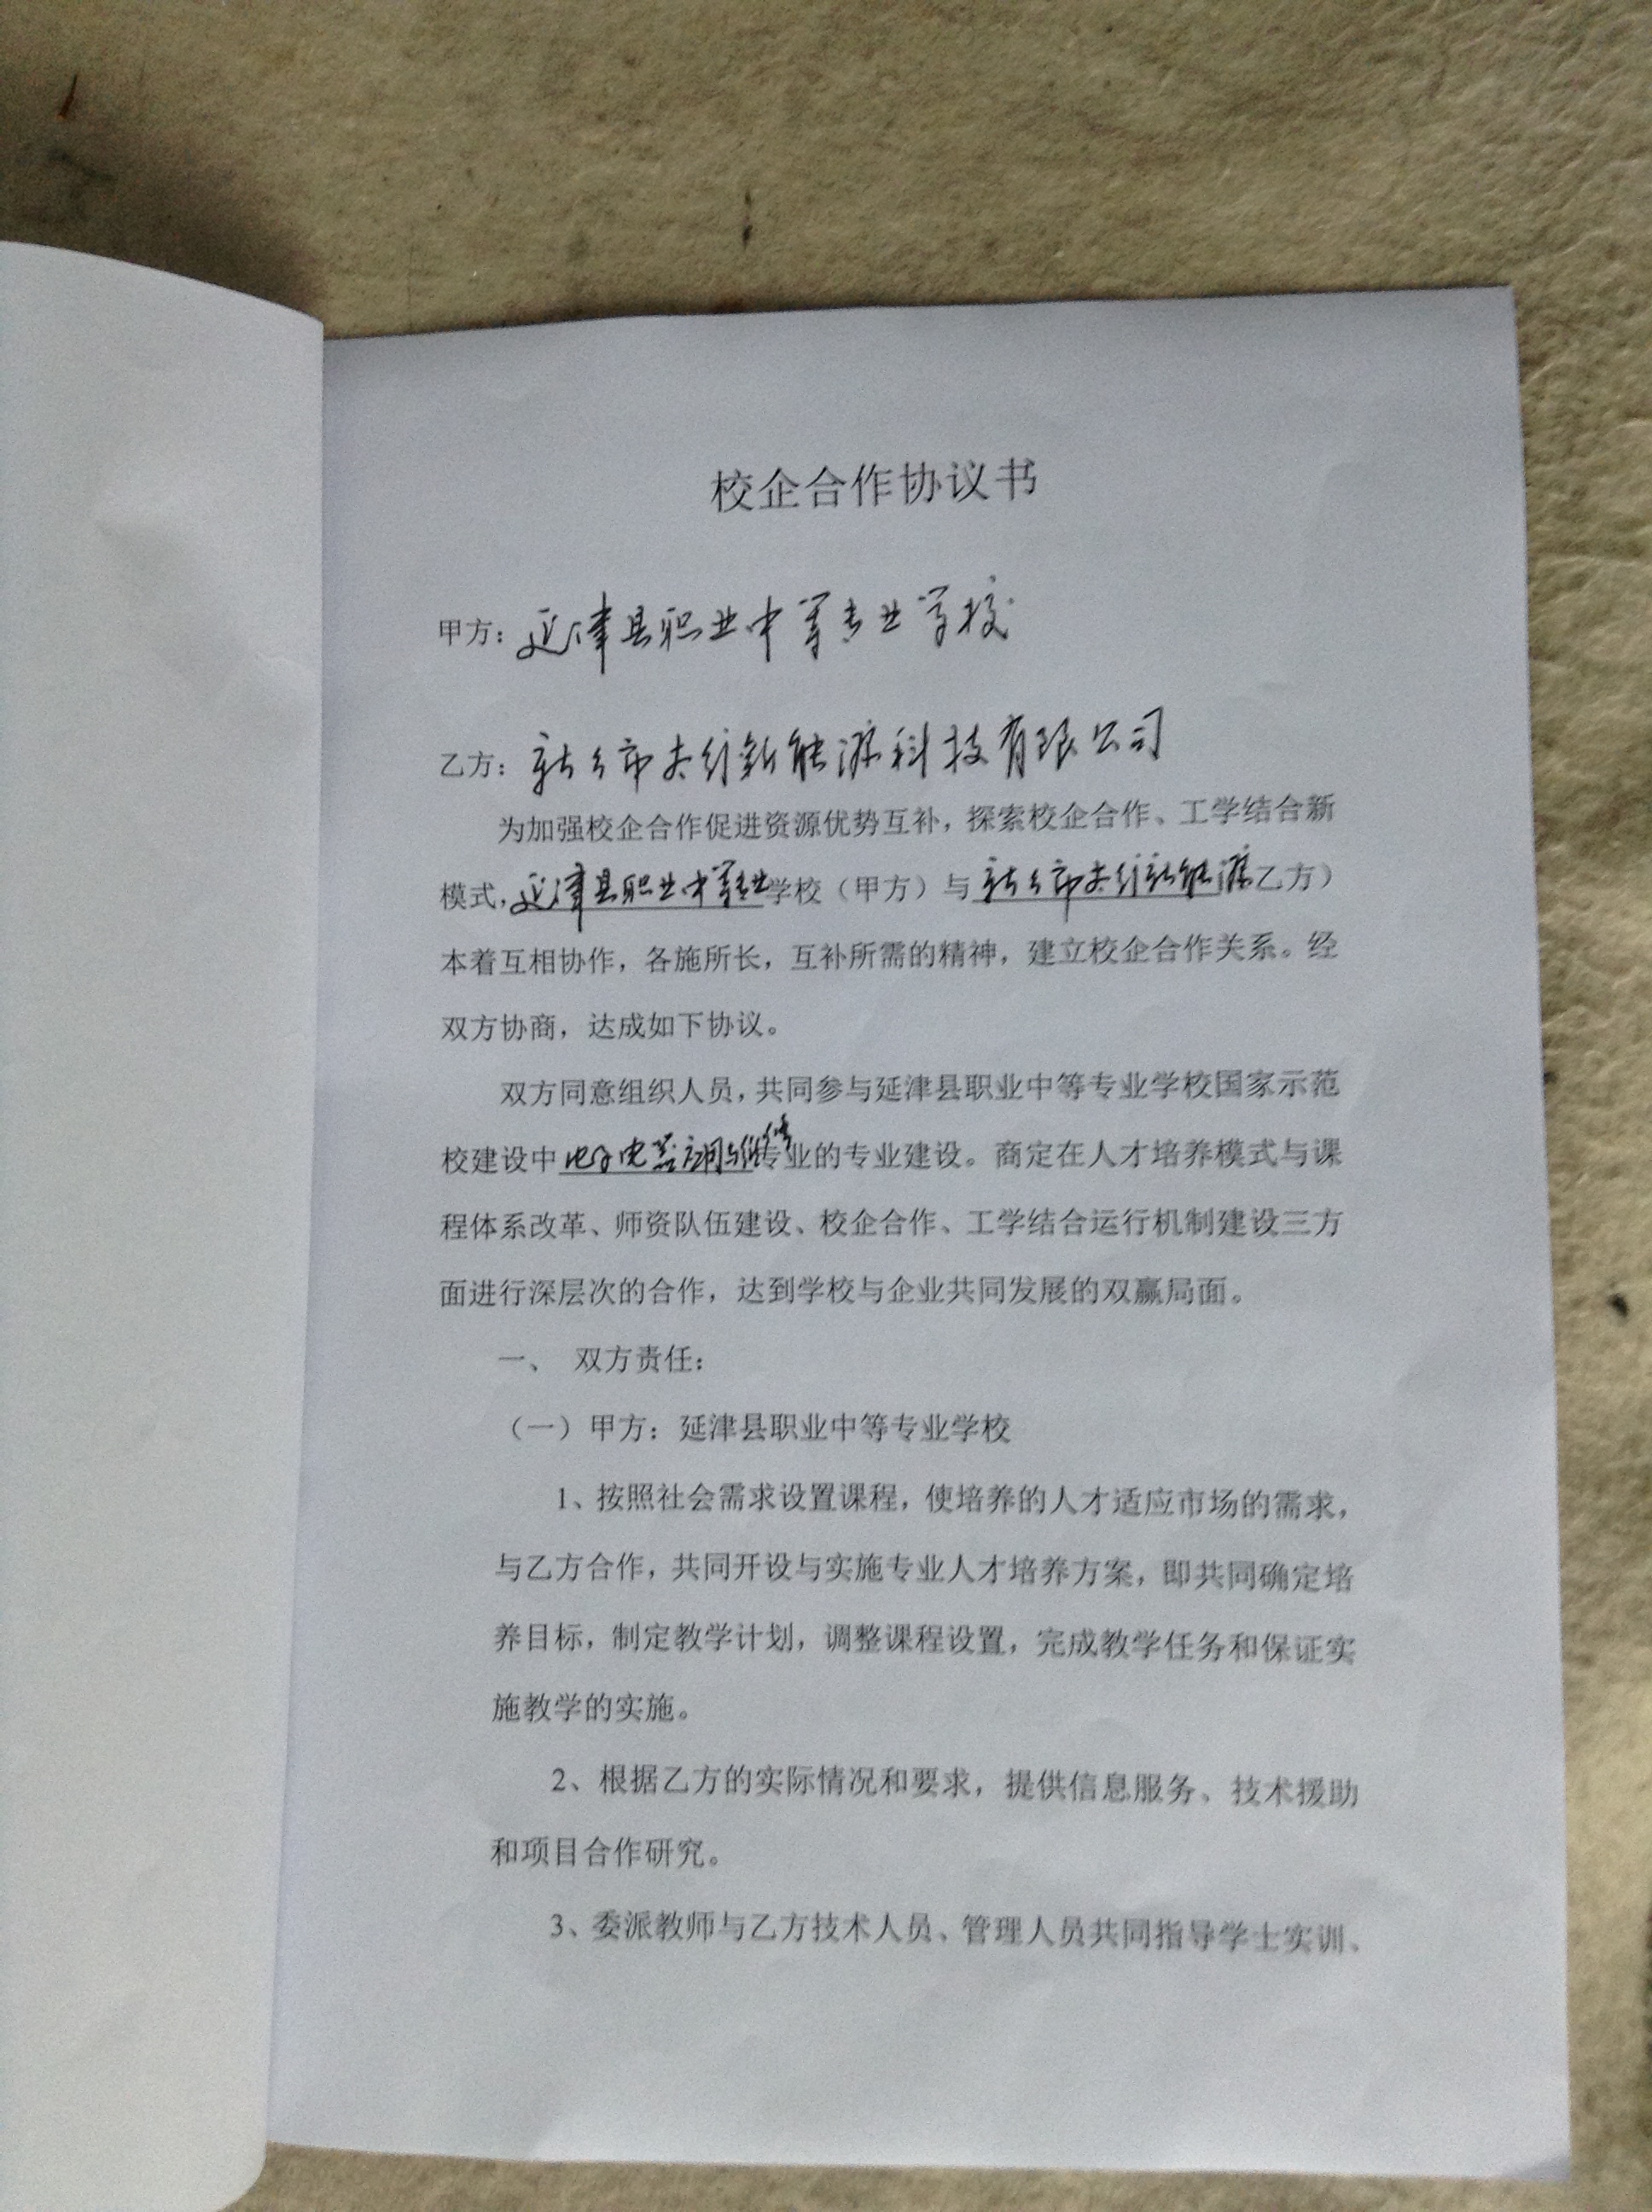 校企合作协议书
甲方：延津县职业中等专业学校
乙方：新乡市太行新能源科技有限公司
为加强校企合作促进资源优势互补，探索校企合作、工学结合新
模式，延津县职业中等专业学校（甲方）与新乡市太行新能源乙方）
本着互相协作，各施所长，互补所需的精神，建立校企合作关系。经
双方协商，达成如下协议。
双方同意组织人员，共同参与延津县职业中等专业学校国家示范
校建设中电子电器应用与维修专业的专业建设。商定在人才培养模式与课
程体系改革、师资队伍建设、校企合作、工学结合运行机制建设三方
面进行深层次的合作，达到学校与企业共同发展的双赢局面。
一、 双方责任：
（一）甲方：延津县职业中等专业学校
1、按照社会需求设置课程，使培养的人才适应市场的需求，
与乙方合作，共同开设与实施专业人才培养方案，即共同确定培
养目标，制定教学计划，调整课程设置，完成教学任务和保证实
施教学的实施。
2、根据乙方的实际情况和要求，提供信息服务、技术援助
和项目合作研究。
3、委派教师与乙方技术人员、管理人员共同指导学士实训、